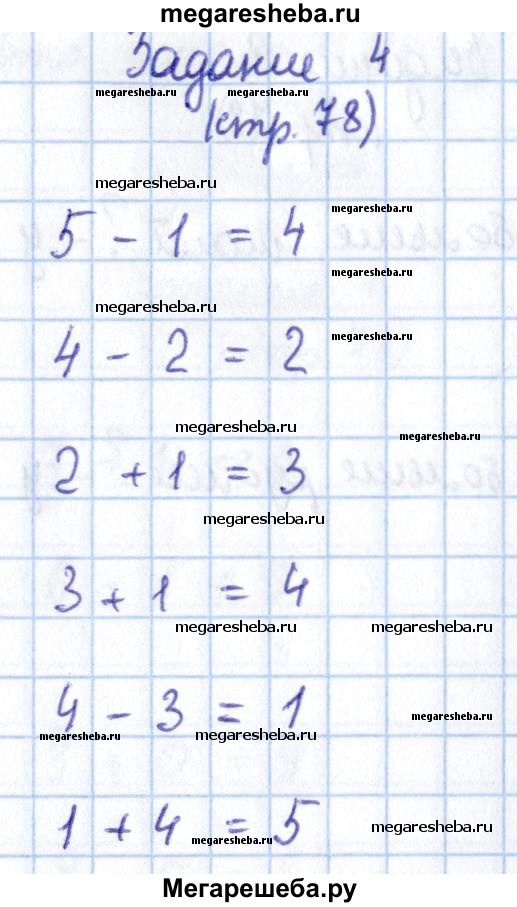 megaresheba.ru
Задание 4
megaresheba.ru megaresheba.ru
(стр. 78)
megaresheba.ru
megaresheba.ru
5 - 1 = 4
megaresheba.ru
megaresheba.ru
4 - 2 = 2
megaresheba.ru
megaresheba.ru
megaresheba.ru
2 + 1 = 3
megaresheba.ru
3 + 1 = 4
megaresheba.ru megaresheba.ru
4 - 3 = 1
megaresheba.ru
megaresheba.ru megaresheba.ru
1 + 4 = 5
megaresheba.ru
megaresheba.ru
Мегарешеба.ру